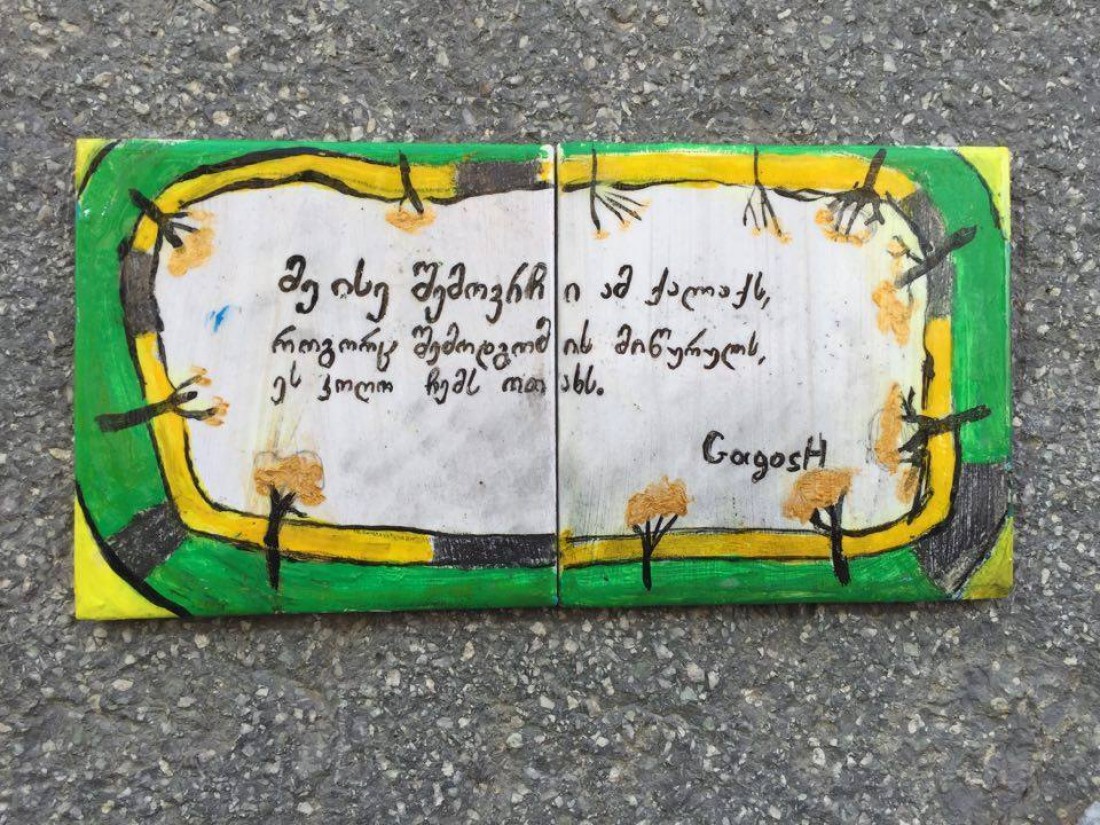 მე ისე შემოვრჩი ამ ქალაქს,
როგორც შემოდგომის მიწურულს,
ეს კოღო ჩემს ოთახს.
GagosH